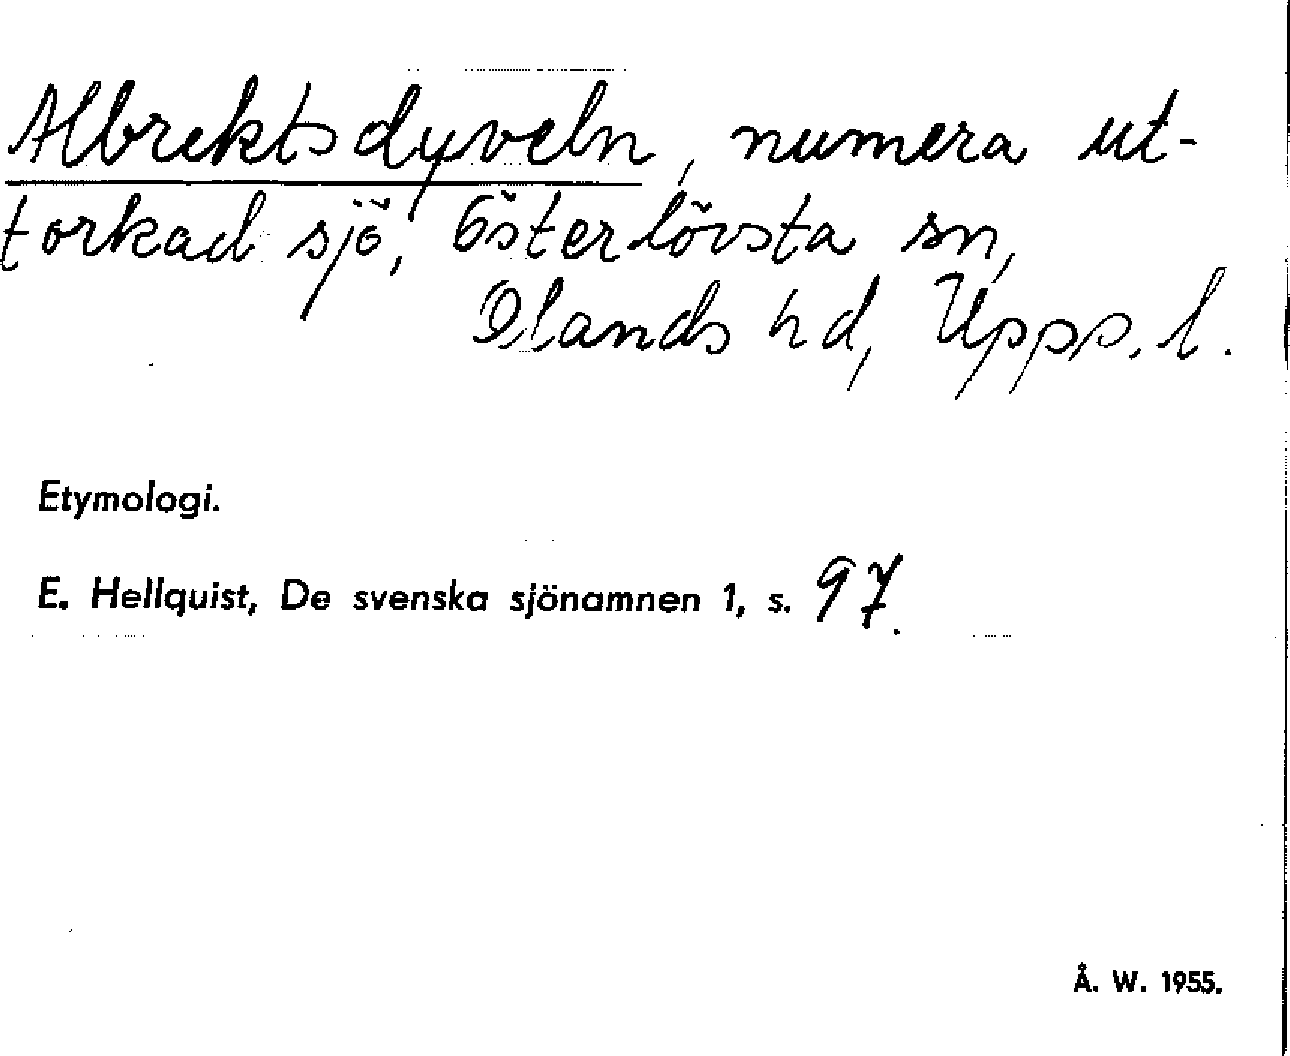 Albrektsdyveln, numera ut-
torkad sjö, Österlövsta sn,
Olands hd, Upps. l.
Etymologi.
E. Hellquist, De svenska sjönamnen 1, s. 97.
Å. W. 1955.